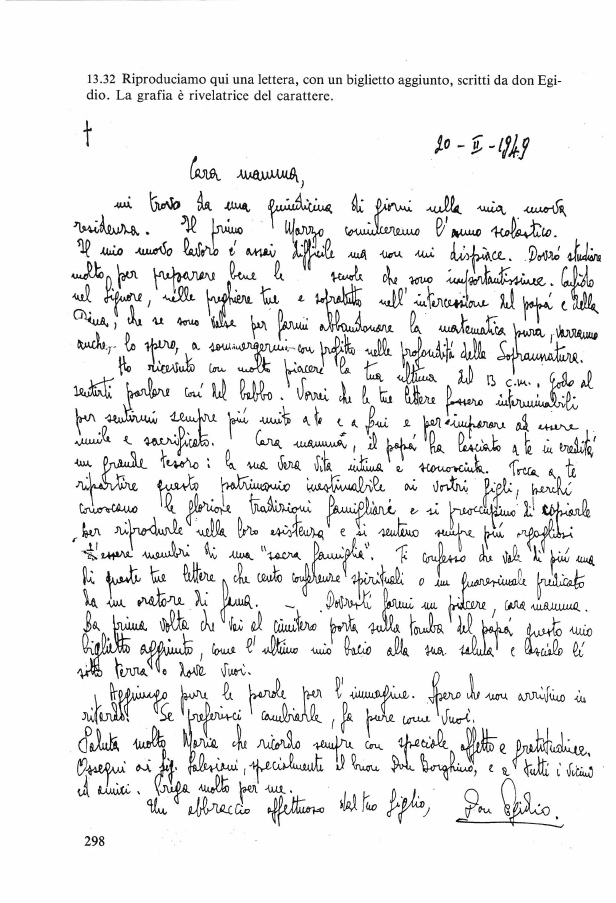 13.32 Riproduciamo qui una lettera, con un biglietto aggiunto, scritti da don Egi-
dio. La grafia è rivelatrice del carattere.
†
20 - II - 1949
Cara mamma,
mi trovo da una quindicina di giorni nella mia nuova
residenza. Il primo Marzo cominceremo l'anno scolastico.
Il mio nuovo lavoro é assai difficile ma non mi dispiace. Dovró studiare
molto per preparare bene le scuole che sono importantissime. Confido
nel Signore, nelle preghiere tue e sopratutto nell'intercessione del papá e della
che se sono valse per farmi abbandonare la matematica pura, varranno
anche, lo spero, a sommergermi con profitto nelle profonditá della Sopranatura.
Ho ricevuto con molto piacere la tua ultima del 13 c.m.. Godo al
sentirti parlare cosí del babbo. Vorrei che le tue lettere fossero interminabili
per sentirmi sempre piú unito a te e a Lui e per imparare ad essere
umile e sacrificato. Cara mamma, il papá ha lasciato a te in ereditá
un grande tesoro: la sua vera vita intima e sconosciuta. Tocca a te
ripartire questo patrimonio inestimabile ai vostri figli, perché
conoscano le gloriose tradizioni famigliari e si preoccupino di copiarle
per riprodurle nella loro esistenza e si sentano sempre piú orgogliosi
d'essere membri di una "sacra famiglia". Ti confesso che vale di piú una
di queste tue lettere, che cento conferenze spirituali o un quaresimale predicato
da un oratore di fama. - Dovresti farmi un piacere, cara mamma.
La prima volta che vai al cimitero porta sulla tomba del papá questo mio
biglietto aggiunto, come l'ultimo mio bacio alla sua salma e lascialo lí
sotto terra o dove vuoi.
Aggiungo pure le parole per l'immagine. Spero che non arrivino in
ritardo. Se preferisci cambiarle, fa pure come vuoi.
Saluta molto Maria che ricordo sempre con speciale affetto e gratitudine.
Ossequi ai Sig. Salesiani, specialmente il buon Don Borghino, e a tutti i vicini
ed amici. Prega molto per me.
Un abbraccio affettuoso dal tuo figlio, Don Egidio.
298